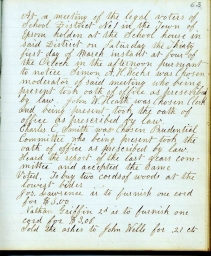 63
At a meeting of the legal voters of
School District No 1 in the Town of
holden at the School house in
said District on Saturday the thirty
first day of March instant at four of
the Clock in the afternoon pursuant
to notice. A. H. was chosen
moderator of said meeting who being
present took oath of office as prescribed
by law. John W. Heath was chosen Clerk
and being present took the oath of
office as prescribed by law.
Charles C. Smith was chosen Prudential
Committee who being present took the
oath of office as prescribed by law.
Heard the report of the last years com
mittee and accepted the same
Voted, To buy two cords of wood at the
lowest bidder
Lawrence is to furnish one cord
for $3.00
Nathan Griffin 2d is to furnish one
cord for
Sold the ashes to John Wells for 21 cts